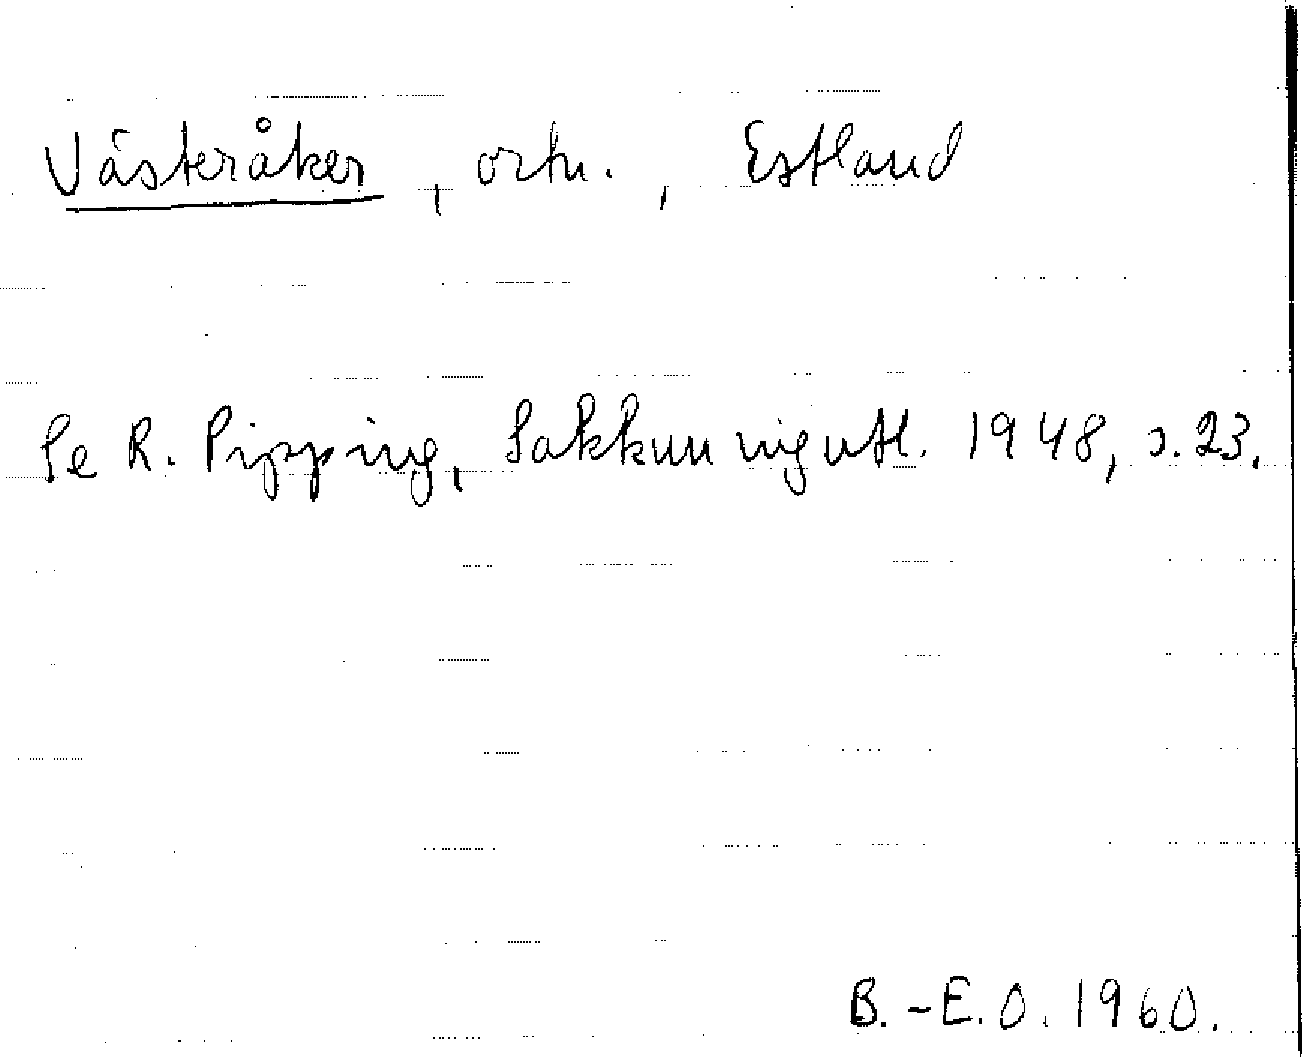 Västeråker, ortn., Estland
Se R. Pipping, Sakkunnigutl. 1948, s. 23.
B.-E.O. 1960.